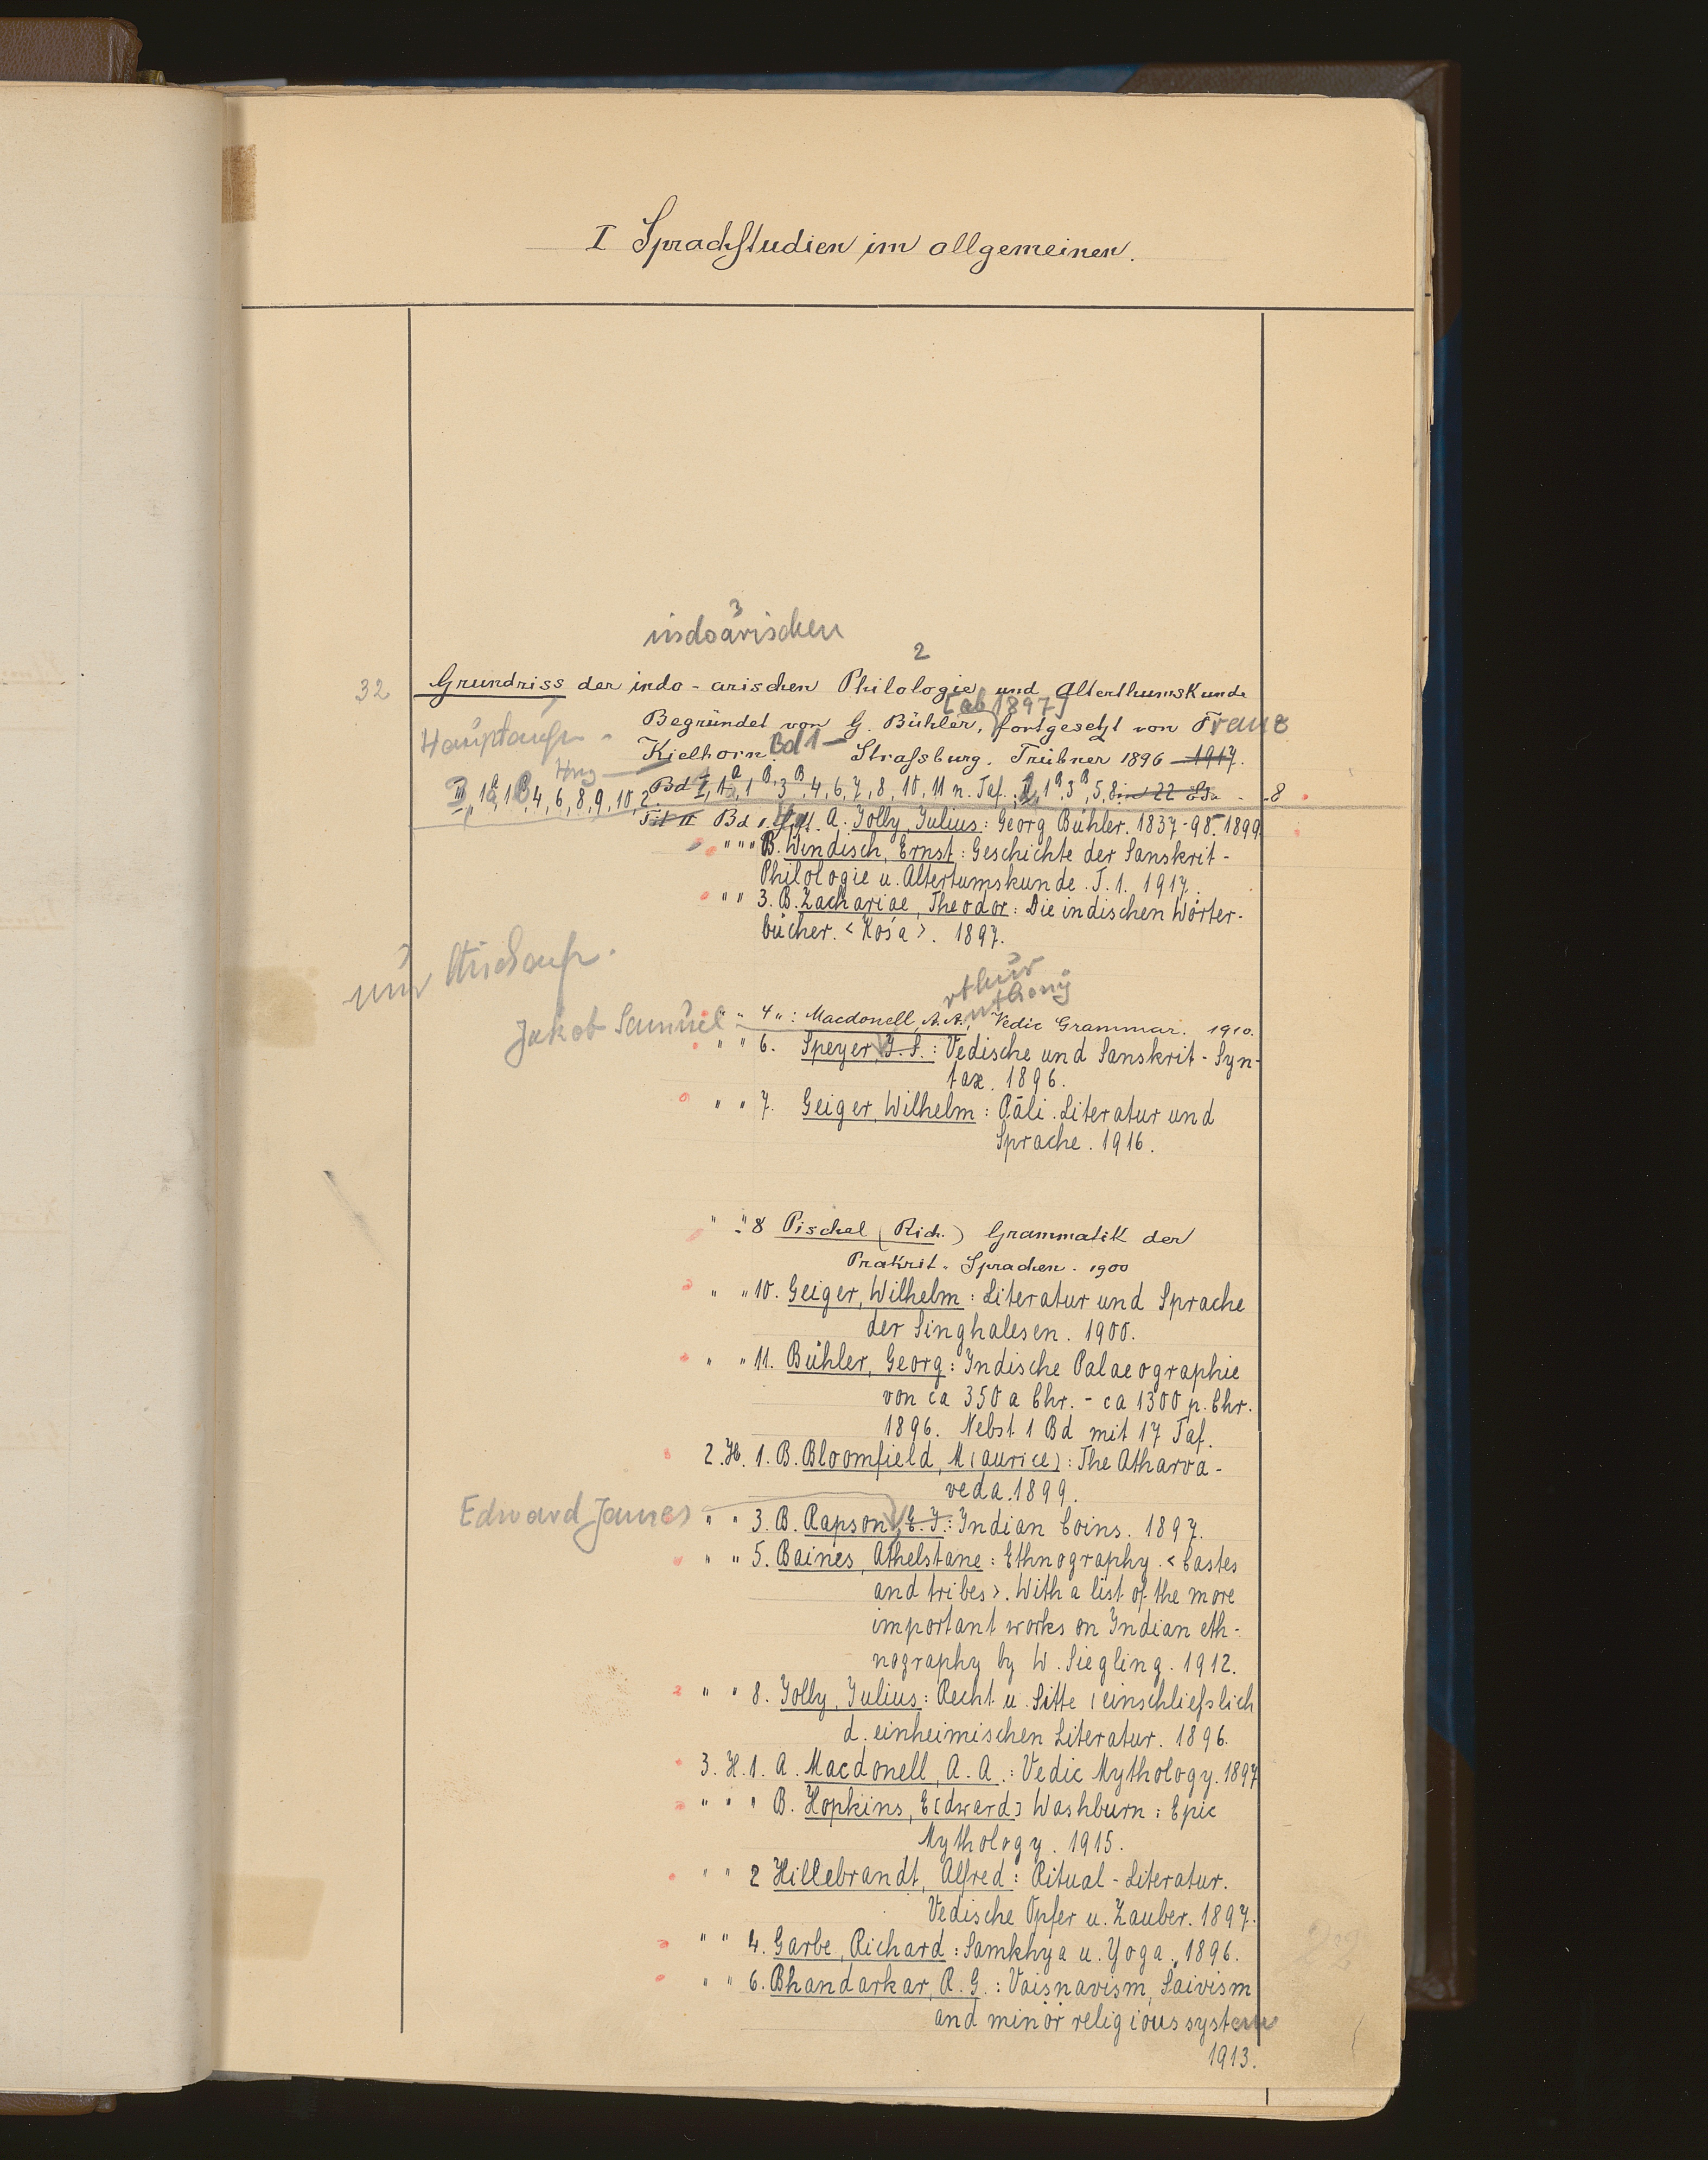 I Sprachstudien im allgemeinen.
3
indoarischen
2
32
Grundriss der indo-arischen Philologie und Alterthumskunde
[ab 1897]
Begründet von G. Bühler, fortgesetzt von Franz
Hauptaufn.
Kielhorn. Bd 1 - Strafsburg. Trübner 1896 - 1917.
Hrsg
III, 1a, 1B, 4, 6, 8, 9, 10, 2
Bd I, 1A, 1B, 3B, 4, 6, 7, 8, 10, 11 n. Taf., 2, 1B, 3B, 5, 8 in 22 - 8
Bd 1. A. Jolly, Julius: Georg Bühler. 1837-98. 1899
" " " B. Windisch, Ernst: Geschichte der Sanskrit-
Philologie u. Altertumskunde. T. 1. 1917.
" " 3. B. Zachariae, Theodor: Die indischen Wörter-
bücher. <Kośa>. 1897.
nur Stichaufn.
rthur
nthony
" " 4 " : Macdonell, A. A., Vedic Grammar. 1910.
Jakob Samuel
" " 6. Speyer, J. S.: Vedische und Sanskrit-Syn-
tax. 1896.
" " 7. Geiger, Wilhelm: Pāli. Literatur und
Sprache. 1916.
" " 8 Pischel (Rich.) Grammatik der
Prakrit-Sprachen. 1900
" " 10. Geiger, Wilhelm: Literatur und Sprache
der Singhalesen. 1900.
" " 11. Bühler, Georg: Indische Palaeographie
von ca 350 a Chr. - ca 1300 p. Chr.
1896. Nebst 1 Bd mit 17 Taf.
2. H. 1. B. Bloomfield, M(aurice): The Atharva-
veda. 1899.
Edward James
" " 3. B. Rapson, E. J.: Indian Coins. 1897.
" " 5. Baines, Athelstane: Ethnography. <Castes
and tribes>. With a list of the more
important works on Indian eth-
nography by W. Siegling. 1912.
" " 8. Jolly, Julius: Recht u. Sitte (einschliefslich
d. einheimischen Literatur. 1896.
3. H. 1. A. Macdonell, A. A.: Vedic Mythology. 1897
" " " B. Hopkins, E[dward] Washburn: Epic
Mythology. 1915.
" " 2 Hillebrandt, Alfred: Ritual-Literatur.
Vedische Opfer u. Zauber. 1897.
" " 4. Garbe, Richard: Samkhya u. Yoga. 1896.
" " 6. Bhandarkar, R. G.: Vaisnavism, Saivism
and minor religious system
1913.
22